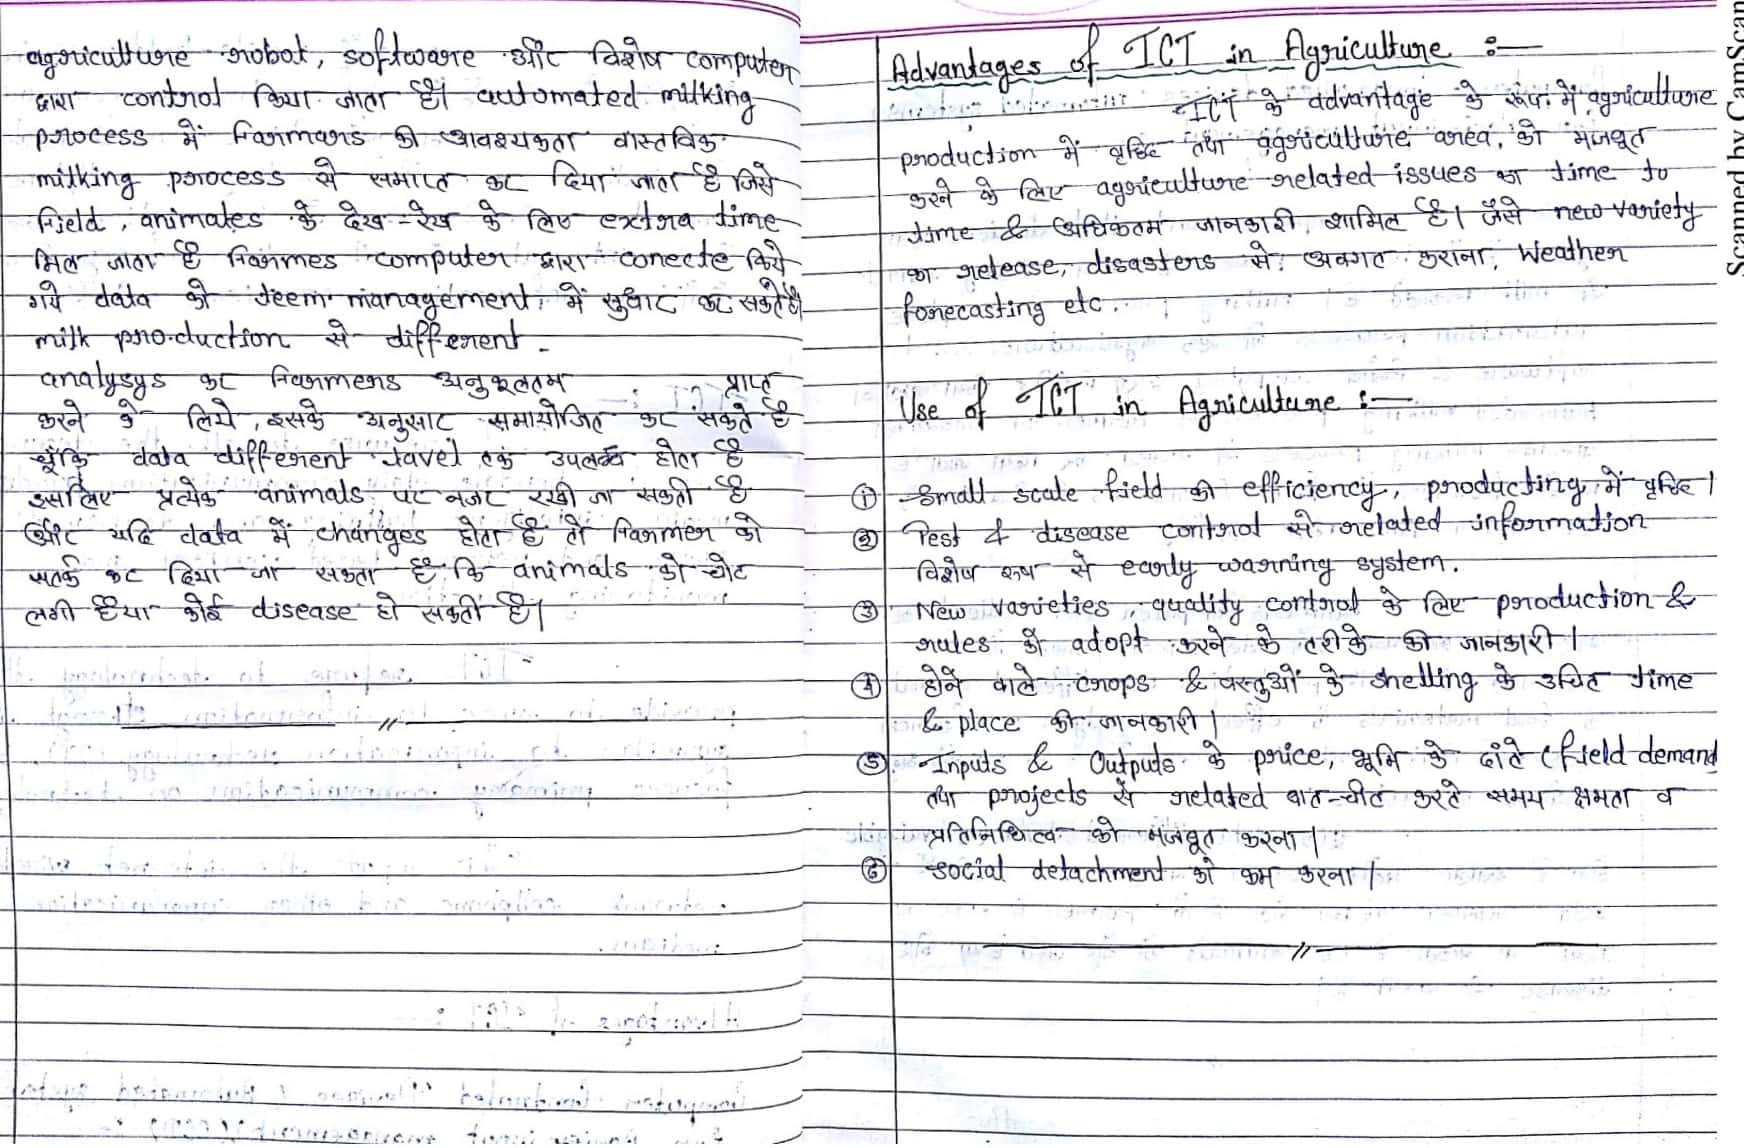 agriculture robot, software और विशेष computer
द्वारा control किया जाता है। automated milking
process में Farmars की आवश्यकता वास्तविक
milking process से समाप्त कर दिया जाता है जिसे
Field, animates के देख-रेख के लिए extra time
मिल जाता है Farmes computer द्वारा conecte किये
गये data को teem management में सुधार कर सकते है।
milk production से different
analysys कर Farmers अनुकूलतम प्राप्त
करने के लिये, इसके अनुसार समायोजित कर सकते है
चूंकि data different लavel तक उपलब्ध होता है
इसलिए प्रत्येक animals पर नजर रखी जा सकती है
और यदि data में changes होता है तो Farmer को
सतर्क कर दिया जा सकता है कि animals को चोट
लगी है या कोई disease हो सकती है।
Advantages of ICT in Agriculture :—
ICT के advantage के रूप में agriculture
production में वृद्धि तथा agriculture area, को मजबूत
करने के लिए agriculture related issues का time to
time & अधिकतम जानकारी शामिल है। जैसे new variety
का release, disasters से अवगत कराना, Weather
forecasting etc.
Use of ICT in Agriculture :—
① Small scale field की efficiency, producting में वृद्धि।
② Pest & disease control से related information
विशेष रूप से early warning system.
③ New varieties quality control के लिए production &
rules को adopt करने के तरीके की जानकारी।
④ होने वाले crops & वस्तुओं के shelling के उचित time
& place की जानकारी।
⑤ Inputs & Outputs के price, भूमि के दांते (field demand
तथा projects से related बात-चीत करते समय क्षमता व
प्रतिनिधित्व को मजबूत करना।
⑥ social detachment को कम करना।
Scanned by CamScan